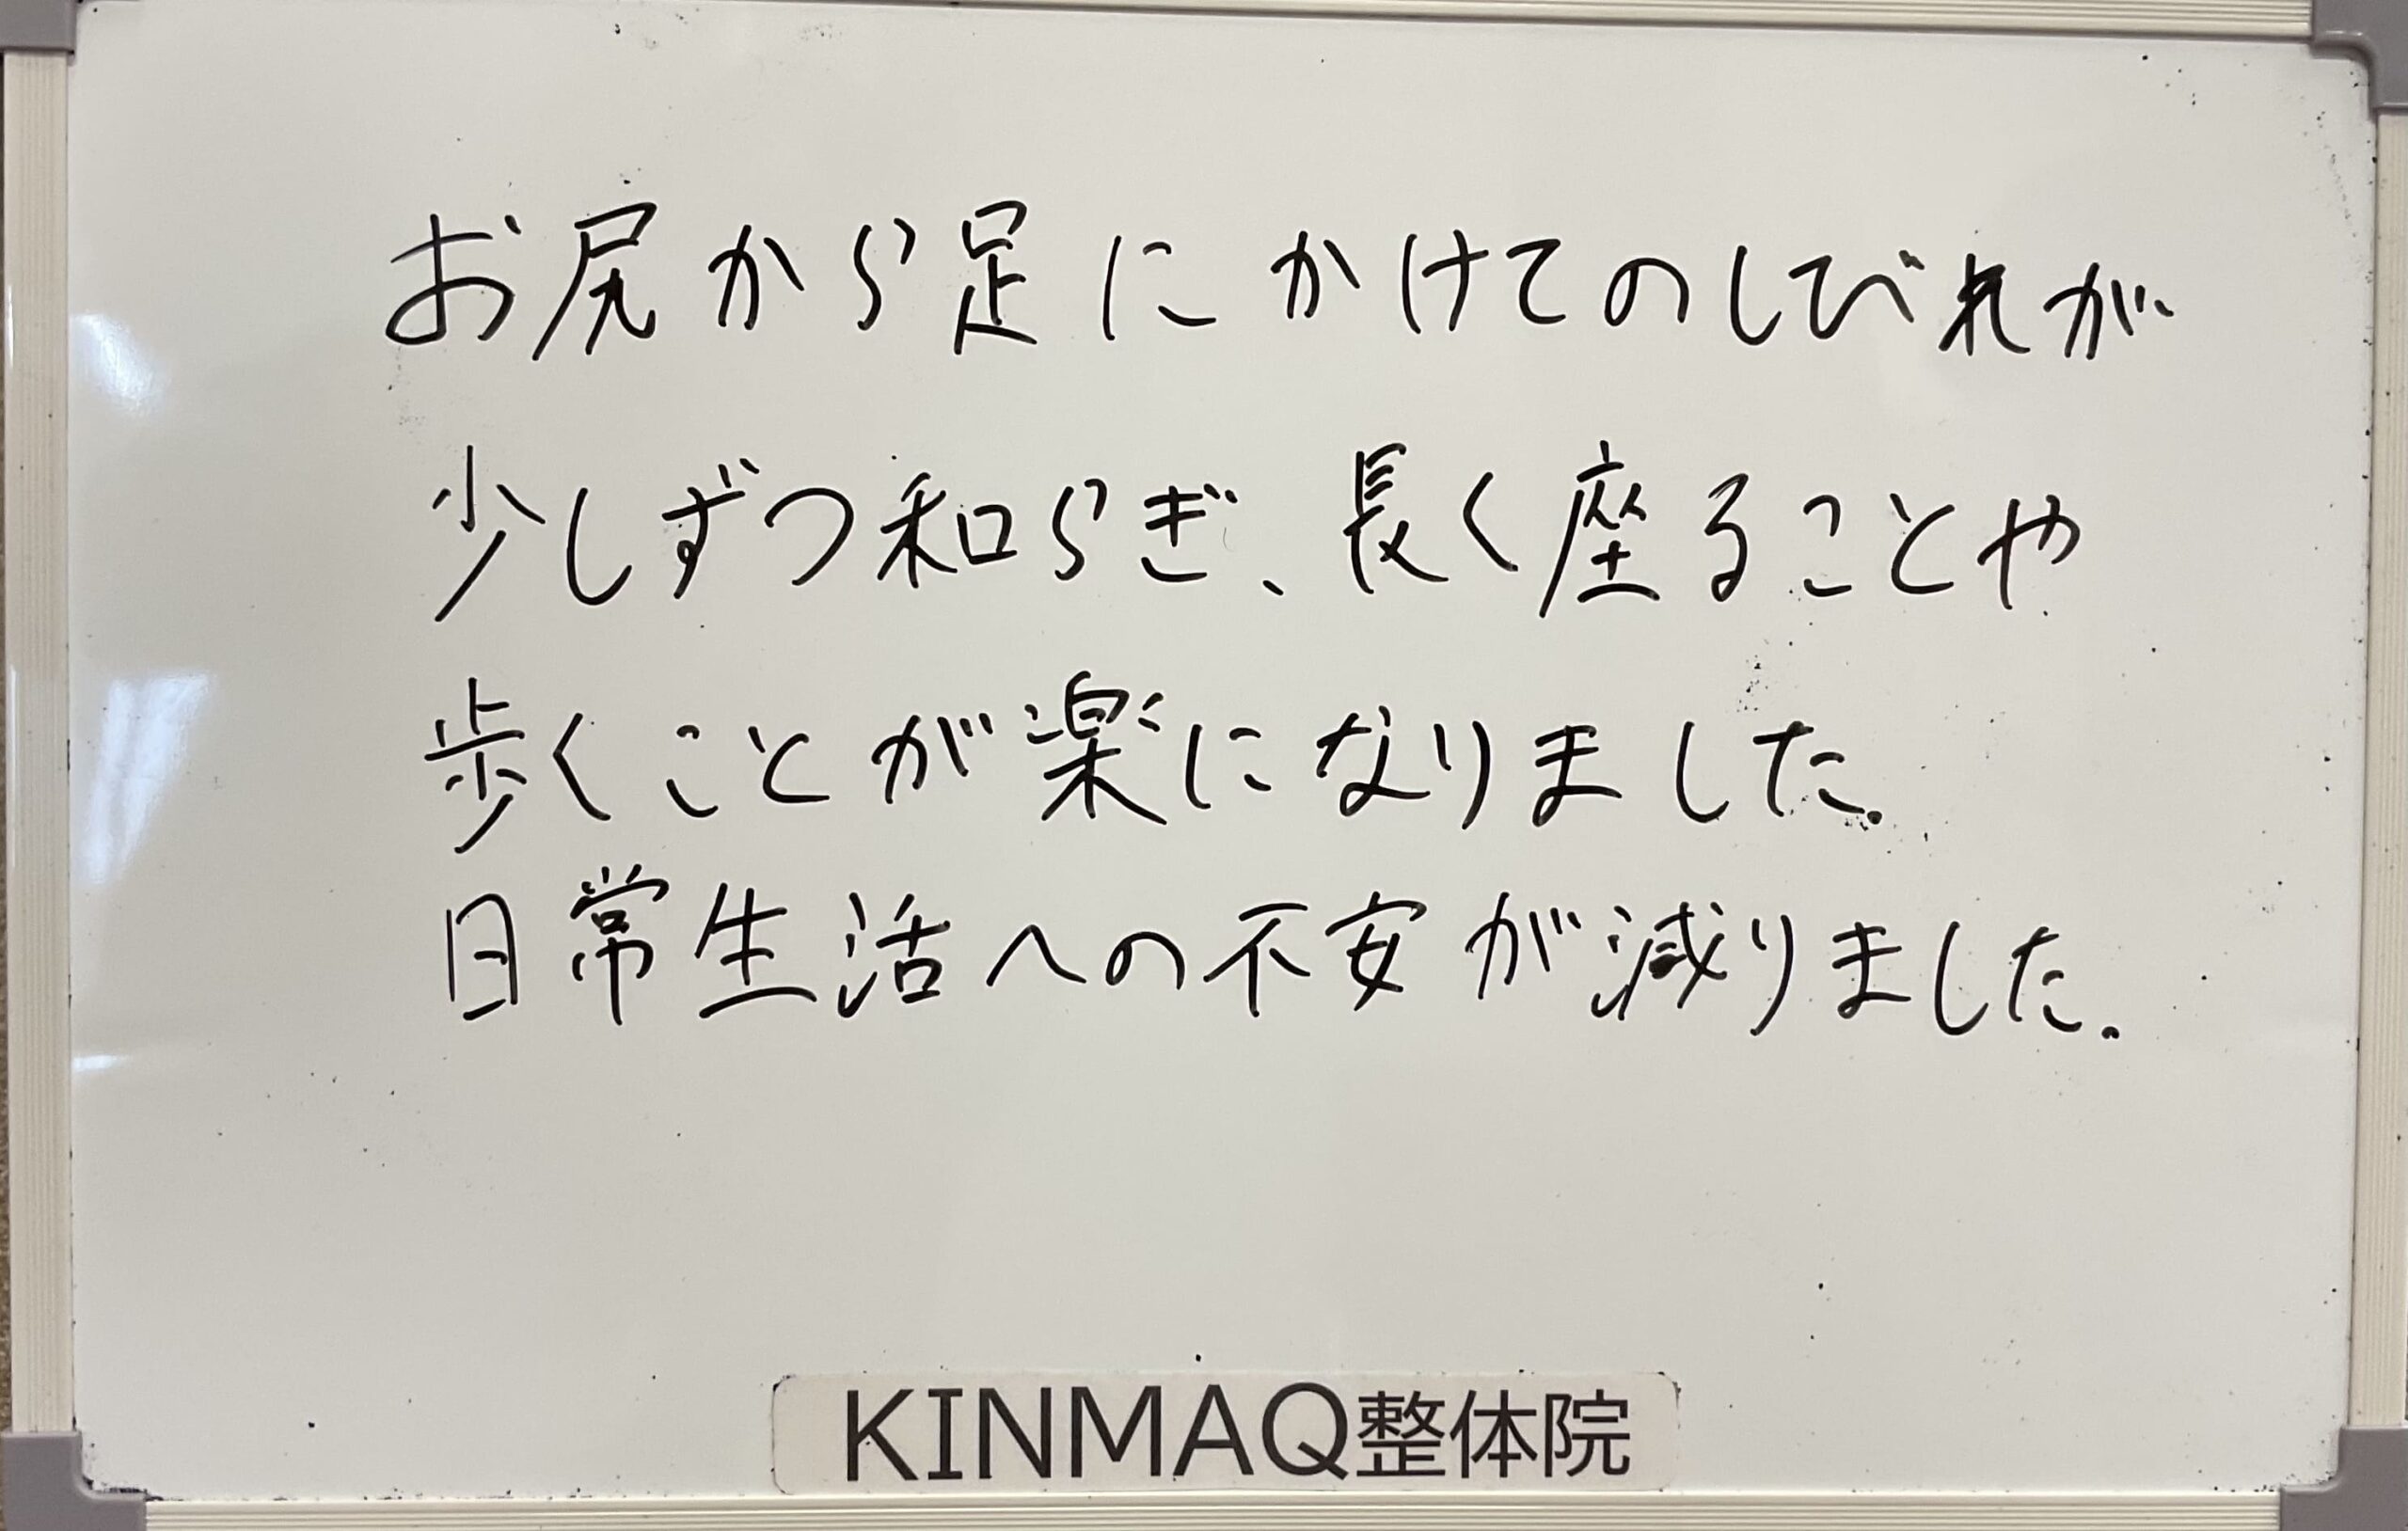 お尻から足にかけてのしびれが
少しずつ和らぎ、長く座ることや
歩くことが楽になりました.
日常生活への不安が減りました.
KINMAQ整体院